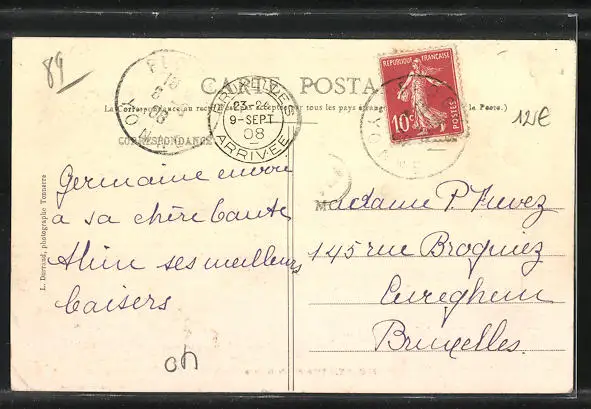 89
CARTE POSTA
RÉPUBLIQUE FRANÇAISE
10c
POSTES
(La Correspondance au recto n'est pas acceptée par tous les pays étrang
la Poste.)
125€
BRUXELLES
23-24
9-SEPT
08
ARRIVÉE
YONNE
CORRESPONDANCE
L. Durand, photographe Tonnerre
Germaine envoie
à sa chère tante
Aline ses meilleurs
baisers
Madame P. Fievez
145 rue Brogniez
Cureghem
Bruxelles